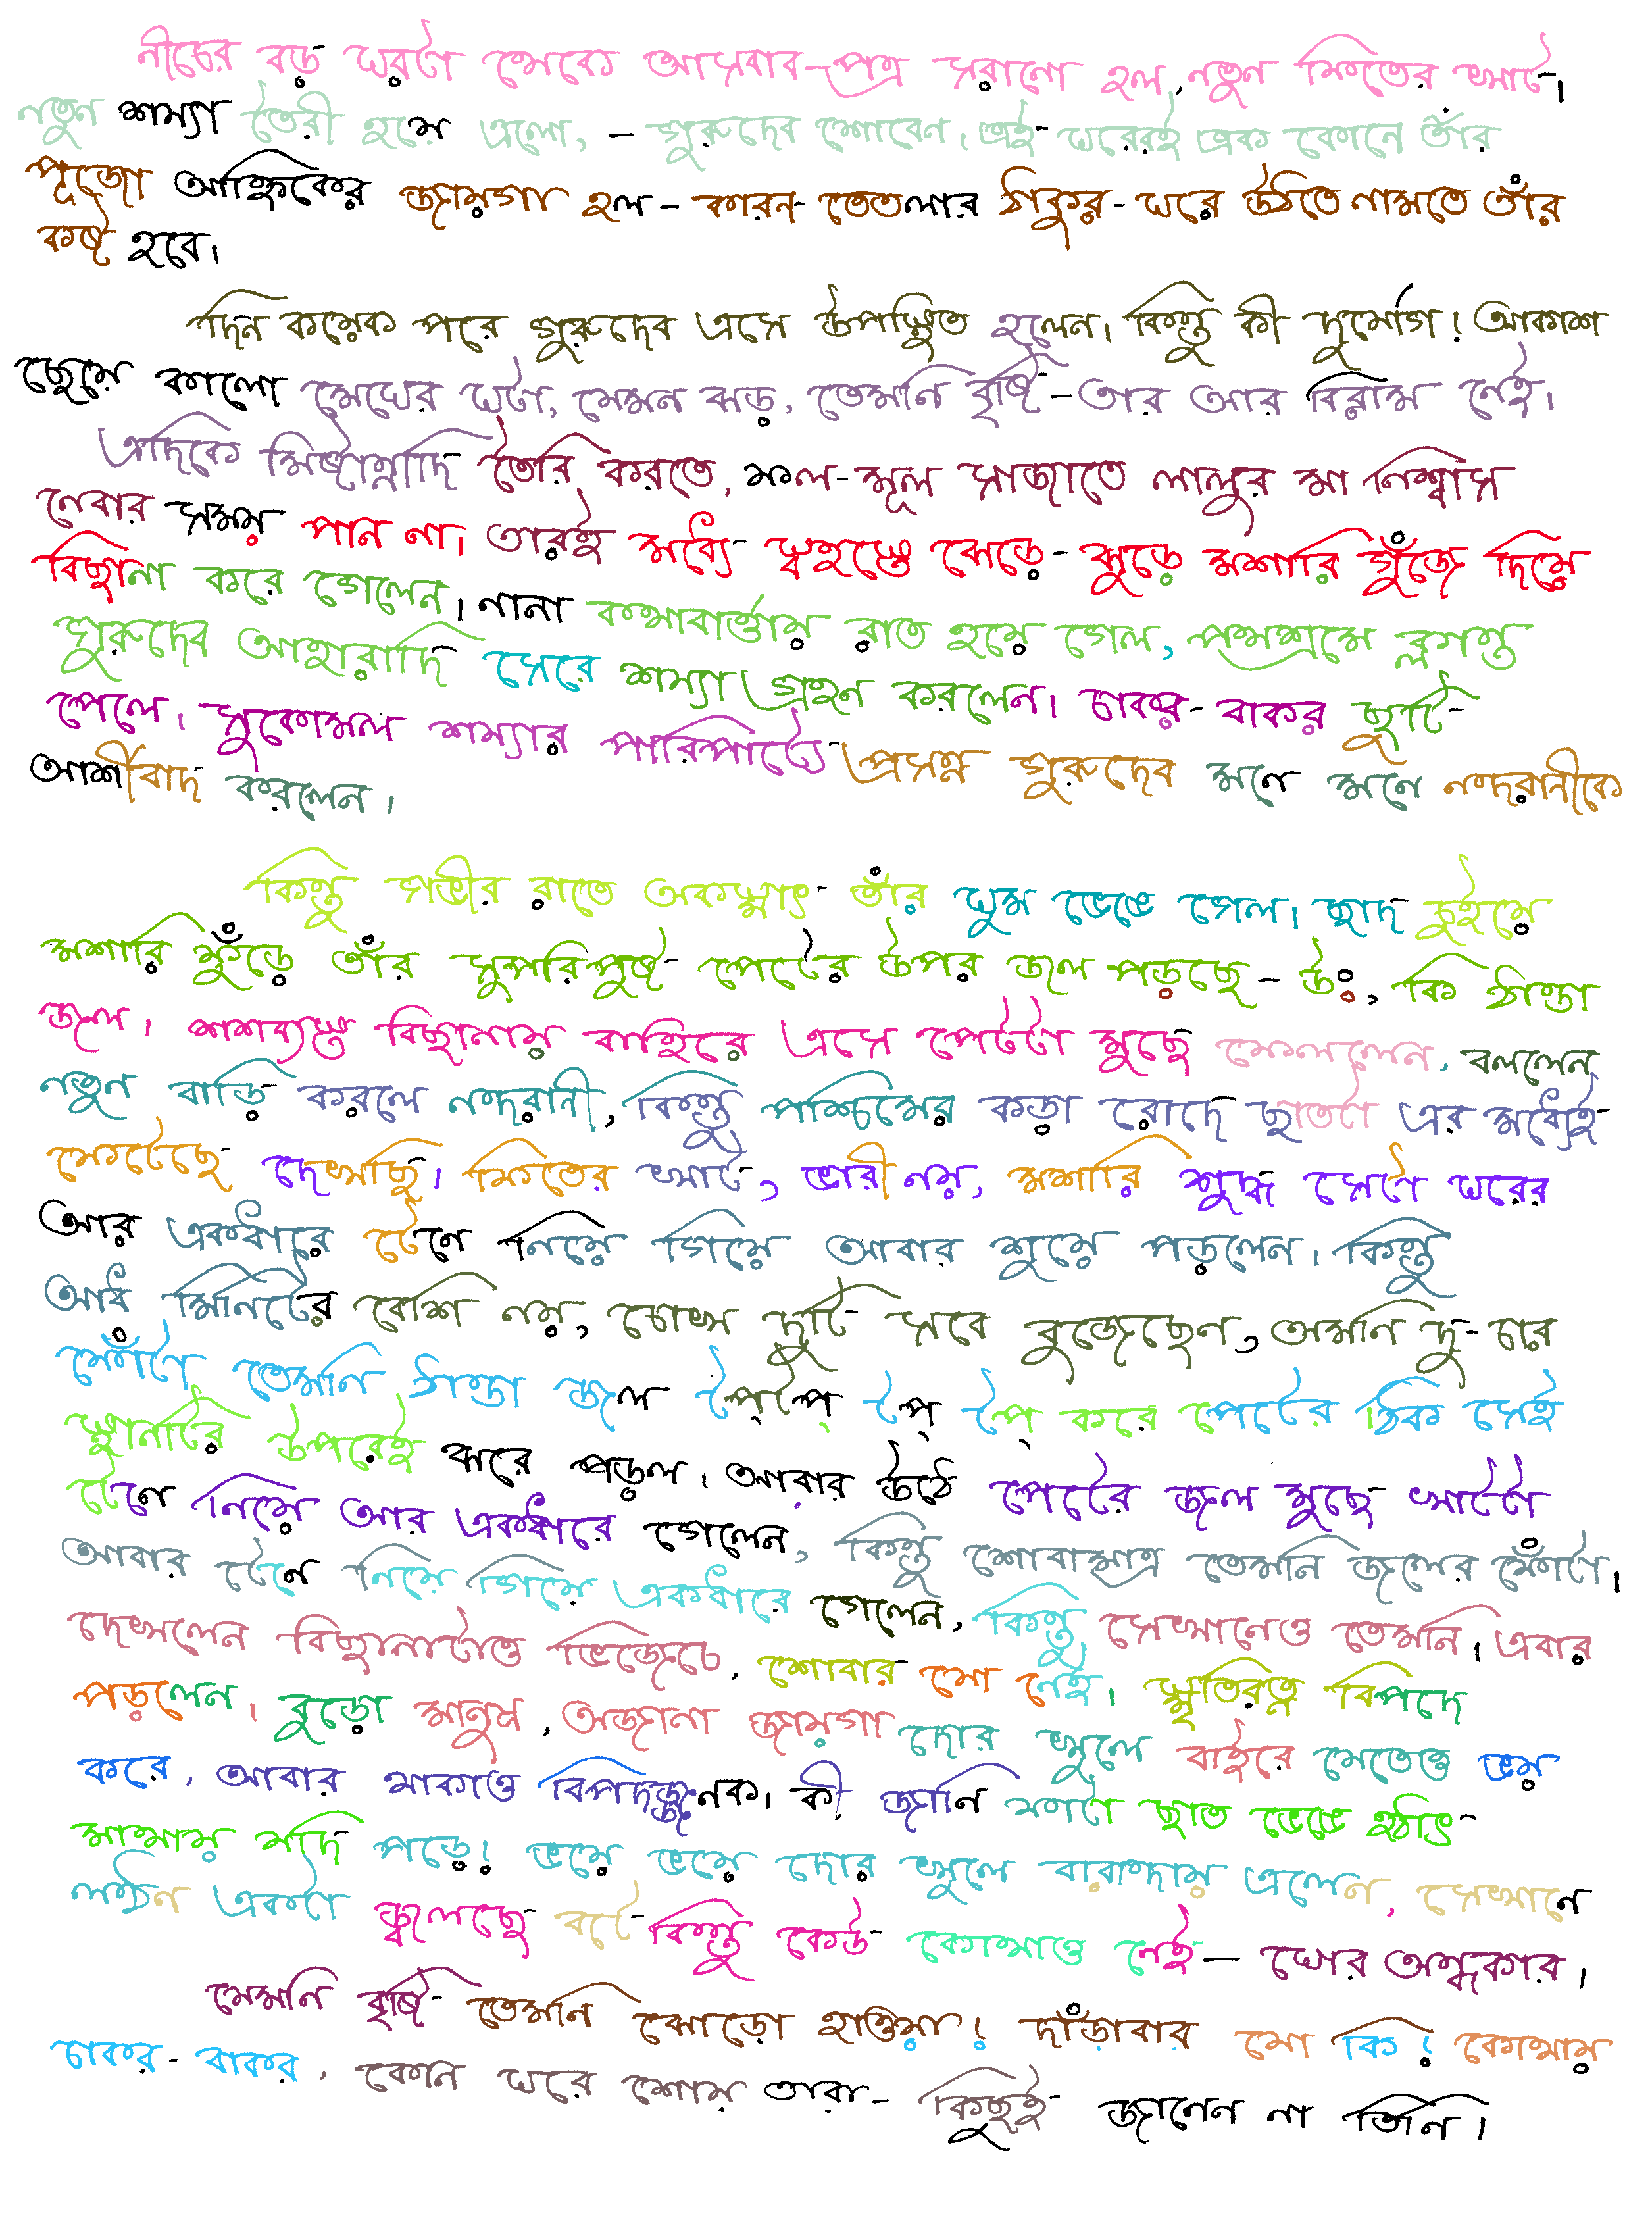 নীচের বড় ঘরটা থেকে আসবাব-পত্র সরানো হল, নতুন ফিতের খাট।
নতুন শয্যা তৈরী হয়ে এলো, – গুরুদেব শোবেন। এই ঘরেরই এক কোনে তাঁর
পূজো আহ্নিকের জায়গা হল – কারন তেতলার ঠাকুর-ঘরে উঠতে নামতে তাঁর
কষ্ট হবে।
দিন কয়েক পরে গুরুদেব এসে উপস্থিত হলেন। কিন্তু কী দুর্যোগ! আকাশ
ছেয়ে কালো মেঘের ঘটা, যেমন ঝড়, তেমনি বৃষ্টি – তার আর বিরাম নেই।
এদিকে মিষ্টান্নাদি তৈরি করতে, ফল-মূল সাজাতে লালুর মা নিশ্বাস
নেবার সময় পান না। তারই মধ্যে স্বহস্তে ঝেড়ে-ঝুড়ে মশারি গুঁজে দিয়ে
বিছানা করে গেলেন। নানা কথাবার্ত্তায় রাত হয়ে গেল, পথশ্রমে ক্লান্ত
গুরুদেব আহারাদি সেরে শয্যা গ্রহণ করলেন। চাকর-বাকর ছুটি
পেলে। সুকোমল শয্যার পারিপাট্যে প্রসন্ন গুরুদেব মনে মনে নন্দরানীকে
আর্শীবাদ করলেন।
কিন্তু গভীর রাতে অকস্মাৎ তাঁর ঘুম ভেঙে গেল। ছাদ চুইয়ে
মশারি ফুঁড়ে তাঁর সুপরিপুষ্ট পেটের উপর জল পড়ছে – উঃ, কি ঠান্ডা
জল। শশব্যস্তে বিছানায় বাহিরে এসে পেটটা মুছে ফেললেন, বললেন
নতুন বাড়ি করলে নন্দরানী, কিন্তু পশ্চিমের কড়া রোদে ছাতটা এর মধ্যেই
ফেটেছে দেখছি। ফিতের খাট, ভারী নয়, মশারি শুদ্ধ সেটা ঘরের
আর একধারে টেনে নিয়ে গিয়ে আবার শুয়ে পড়লেন। কিন্তু
আধ মিনিটের বেশি নয়, চোখ দুটি সবে বুজেছেন, অমনি দু-চার
ফোঁটা তেমনি ঠান্ডা জল টপ্টপ্ টপ্ টপ্ করে পেটের ঠিক সেই
স্থানটির উপরেই ঝরে পড়ল। আবার উঠে পেটের জল মুছে খাটটা
টেনে নিয়ে আর একধারে গেলেন, কিন্তু শোবামাত্র তেমনি জলের ফোঁটা।
আবার টেনে নিয়ে গিয়ে একধারে গেলেন, কিন্তু সেখানেও তেমনি। এবার
দেখলেন বিছানাটাও ভিজেচে, শোবার যো নেই। স্মৃতিরত্ন বিপদে
পড়লেন। বুড়ো মানুষ, অজানা জায়গা দোর খুলে বাইরে যেতেও ভয়
করে, আবার থাকাও বিপদজ্জনক। কী জানি ফাটা ছাত ভেঙে হঠাৎ
মাথায় যদি পড়ে! ভয়ে ভয়ে দোর খুলে বারান্দায় এলেন, সেখানে
লণ্ঠন একটা জ্বলছে বটে কিন্তু কেউ কোথাও নেই – ঘোর অন্ধকার।
যেমনি বৃষ্টি তেমনি ঝোড়ো হাওয়া! দাঁড়াবার যো কি! কোথায়
চাকর-বাকর, কোন ঘরে শোয় তারা – কিছুই জানেন না তিনি।